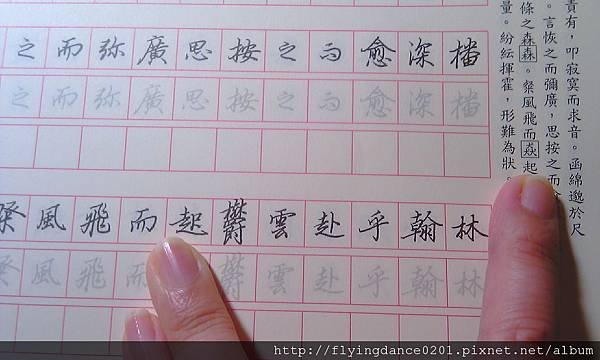 責有，叩寂寞而求音。函綿邈於尺
。言恢之而彌廣，思按之而
條之森森。粲風飛而焱起
量。紛紜揮霍，形難為狀。
之而弥廣思按之而愈深播
之而弥廣思按之而愈深播
粲風飛而起鬱雲赴乎翰林
粲風飛而鬱雲赴乎翰林
http://flyingdance0201.pixnet.net/album